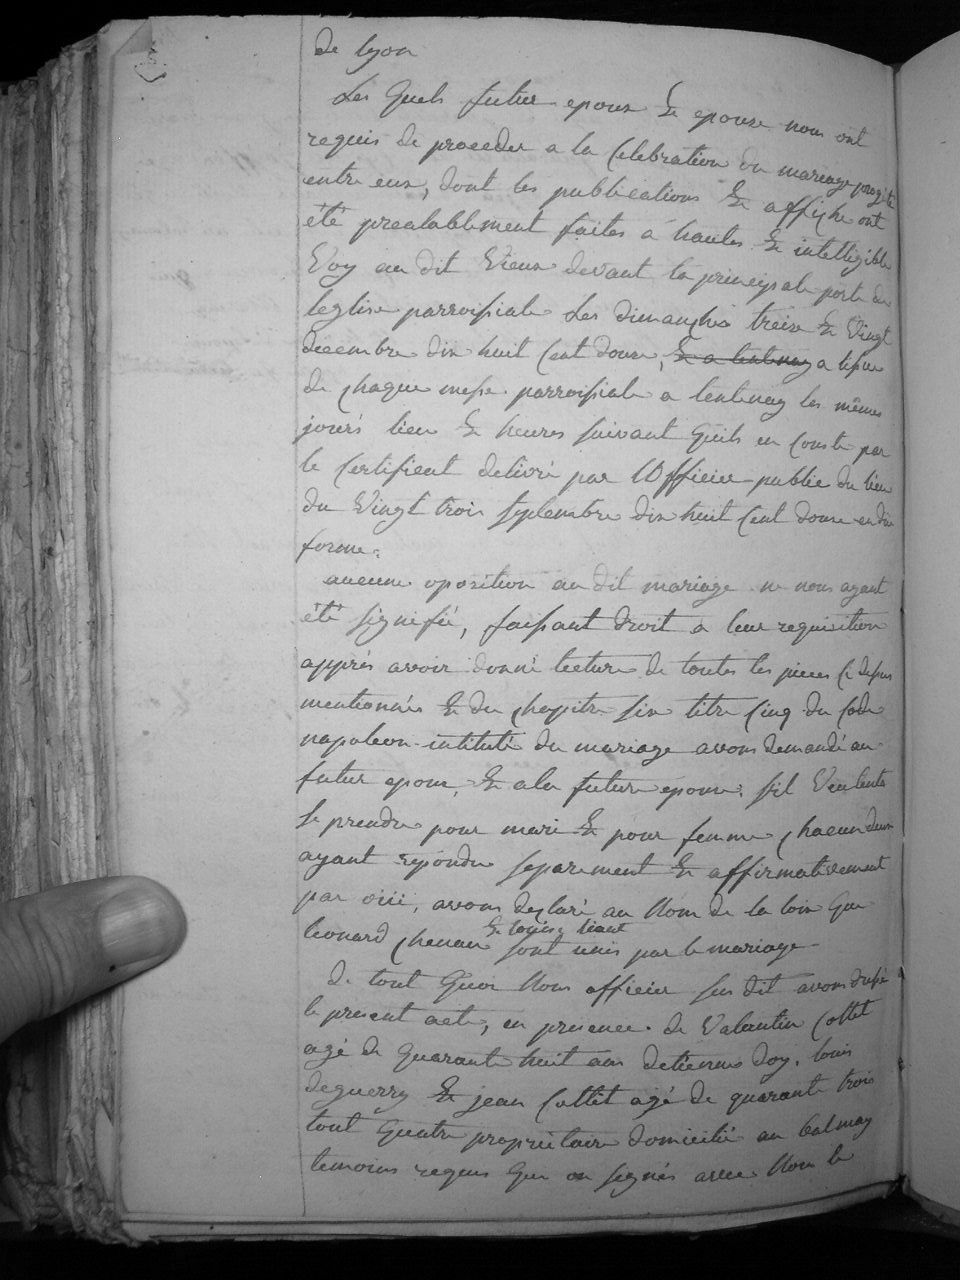 de lyon
Les quels futur epoux & epouse nous ont
requis de proceder a la Celebration du mariage progété
entre eux, dont les publications & affiche ont
été prealablement faites a hautes & intelligible
Voy au dit Vieux devant la principale porte de
leglise parroissiale Les dimanches treize & Vingt
décembre dix huit Cent douze, & a lentenay a lissue
de chaque messe parroissiale a lentenay les mêmes
jours lieu & heures suivant quils en Conste par
le Certificat delivré par lOfficier public du lieu
du Vingt trois septembre dix huit Cent douze en due
forme.
aucune oposition au dit mariage ne nous ayant
été signifée, faissant droit a leur requisition
apprés avoir donné lecture de toutes les pieces Ci dessus
mentionnés & du chapitre six titre Cinq du Code
napoleon intitulé du mariage avons demandé au
futur epoux, & a la future epouse, sil Veulents
se prendre pour mari & pour femme, chacun deux
ayant repondu separement & affirmativement
par oüi, avons declaré au Nom de la loix que
& louise
leonard sont unis par le mariage
de tout quoi Nous officier sus dit avons dressé
le present acte, en presence de Valentin Collet
agé de quarante huit ans detienne doy, louis
deguerry & jean Collet agé de quarante trois
tout quatre proprietaire domicilié au balmay
temoins requis que on signés avec Nous le